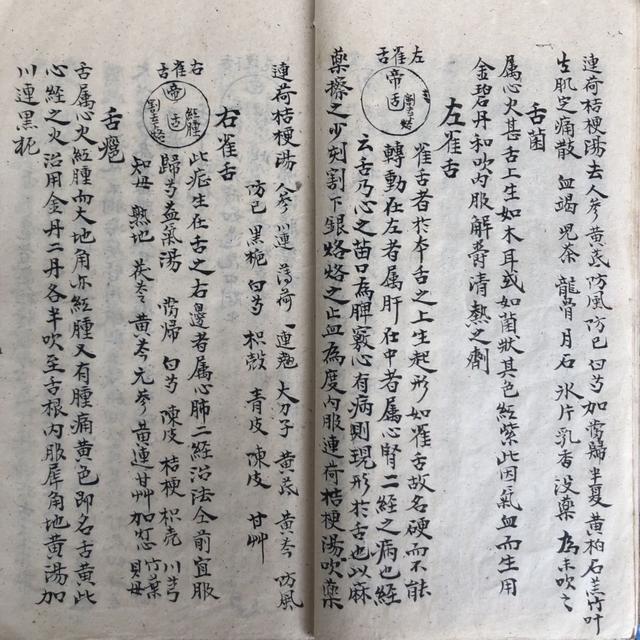 連荷桔梗湯去人參黃芪防風防已白芍加當歸半夏黃柏石羔竹叶
生肌定痛散 血竭 児茶 龍骨 月石 氷片 乳香 没藥 為末吹之
舌菌
属心火甚舌上生如木耳或如菌狀其色紅紫此因氣血而生用
金碧丹和吹内服解欝清熱之劑
左雀舌
左雀舌
帝舌
雀舌者於本舌之上生起形如雀舌故名硬而不能
轉動在左者属肝在中者属心腎二經之病也經
云舌乃心之苗口為脾竅心有病則現形於舌也以麻
藥搽之少刻割下銀烙烙之止血為度内服連荷桔梗湯吹藥
連荷桔梗湯 人參 川連 薄荷 連翹 大力子 黃芪 黃芩 防風
防已 黑栀 白芍 枳殼 青皮 陳皮 甘艸
右雀舌
右雀舌
帝舌
紅腫
此症生在舌之右邊者属心肺二經治法仝前宜服
歸芍益氣湯 當歸 白芍 陳皮 桔梗 枳壳 川芎
知母 熟地 茯苓 黃芩 元參 黃連 甘艸 加灯心 竹葉 貝母
舌癰
舌属心火紅腫而大地角亦紅腫又有腫痛黃色即名舌黃此
心經之火治用金丹二丹各半吹至舌根内服犀角地黃湯加
川連黑栀